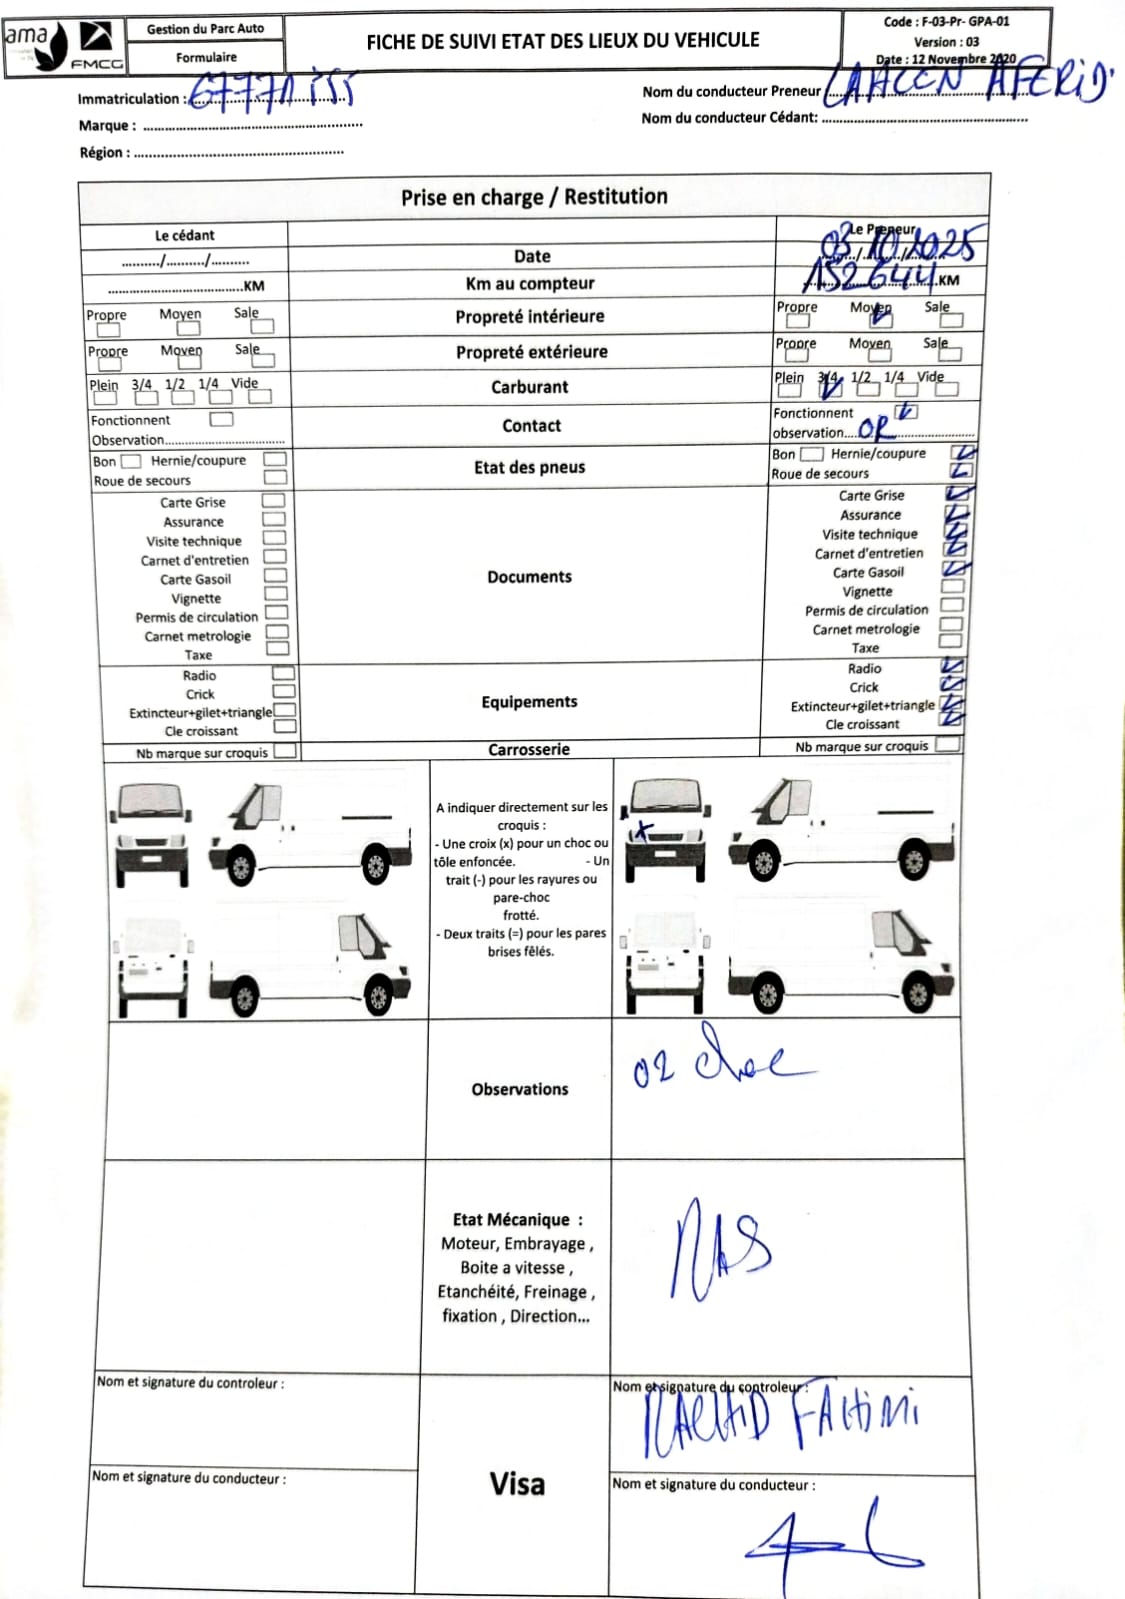 ama
FMCG
Gestion du Parc Auto
Formulaire
FICHE DE SUIVI ETAT DES LIEUX DU VEHICULE
Code : F-03-Pr- GPA-01
Version : 03
Date : 12 Novembre 2020
Immatriculation :
Marque :
Région :
Nom du conducteur Preneur LAHCEN AFERID
Nom du conducteur Cédant:
Prise en charge / Restitution
Le cédant
Le Preneur
........../........../.......... Date 03/10/2025
KM Km au compteur 152644 KM
Propre Moyen Sale Propreté intérieure Propre Moyen Sale
Propre Moyen Sale Propreté extérieure Propre Moyen Sale
Plein 3/4 1/2 1/4 Vide Carburant Plein 3/4 1/2 1/4 Vide
Fonctionnent Contact Fonctionnent
Observation observation
Bon Hernie/coupure Etat des pneus Bon Hernie/coupure
Roue de secours Roue de secours
Documents
Carte Grise Carte Grise
Assurance Assurance
Visite technique Visite technique
Carnet d'entretien Carnet d'entretien
Carte Gasoil Carte Gasoil
Vignette Vignette
Permis de circulation Permis de circulation
Carnet metrologie Carnet metrologie
Taxe Taxe
Equipements
Radio Radio
Crick Crick
Extincteur+gilet+triangle Extincteur+gilet+triangle
Cle croissant Cle croissant
Nb marque sur croquis Carrosserie Nb marque sur croquis
A indiquer directement sur les
croquis :
- Une croix (x) pour un choc ou
tôle enfoncée. - Un
trait (-) pour les rayures ou
pare-choc
frotté.
- Deux traits (=) pour les pares
brises fêlés.
Observations 02 choc
Etat Mécanique :
Moteur, Embrayage ,
Boite a vitesse ,
Etanchéité, Freinage ,
fixation , Direction...
RAS
Nom et signature du controleur :
Nom et signature du controleur :
RACHID FAHIMI
Visa
Nom et signature du conducteur :
Nom et signature du conducteur :